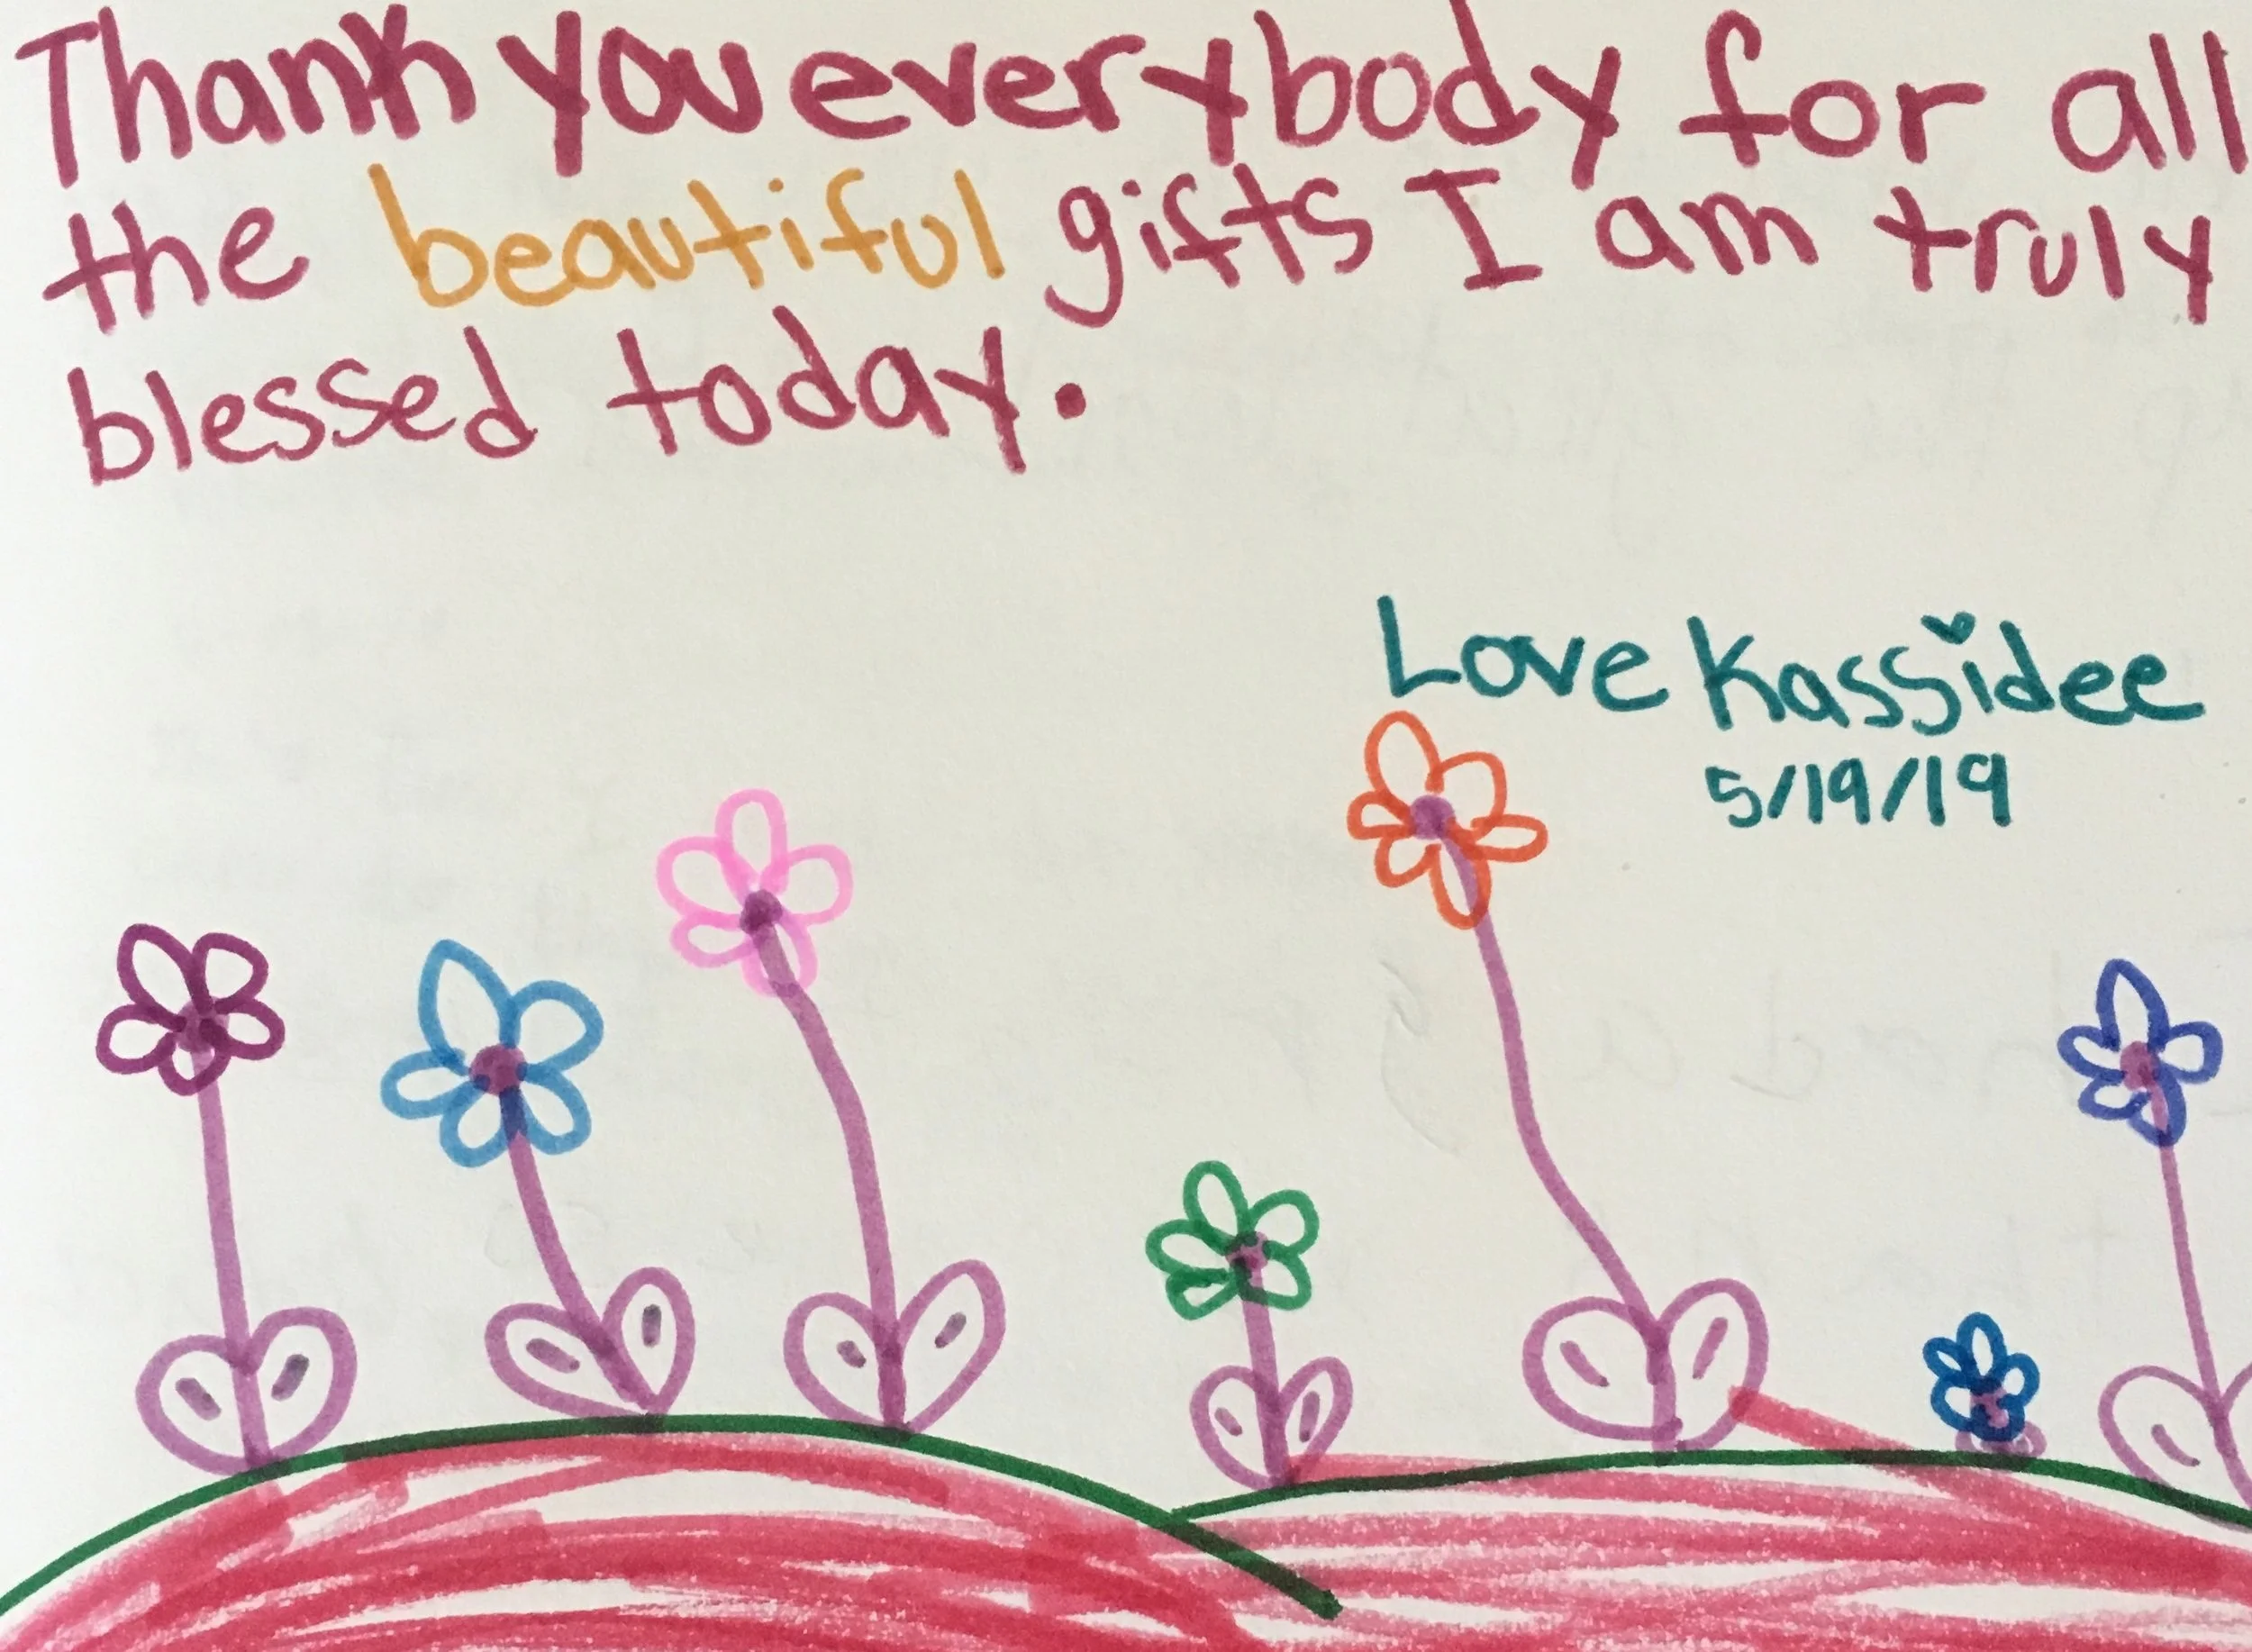 Thank you everybody for all
the beautiful gifts I am truly
blessed today.
Love Kassidee
5/19/19